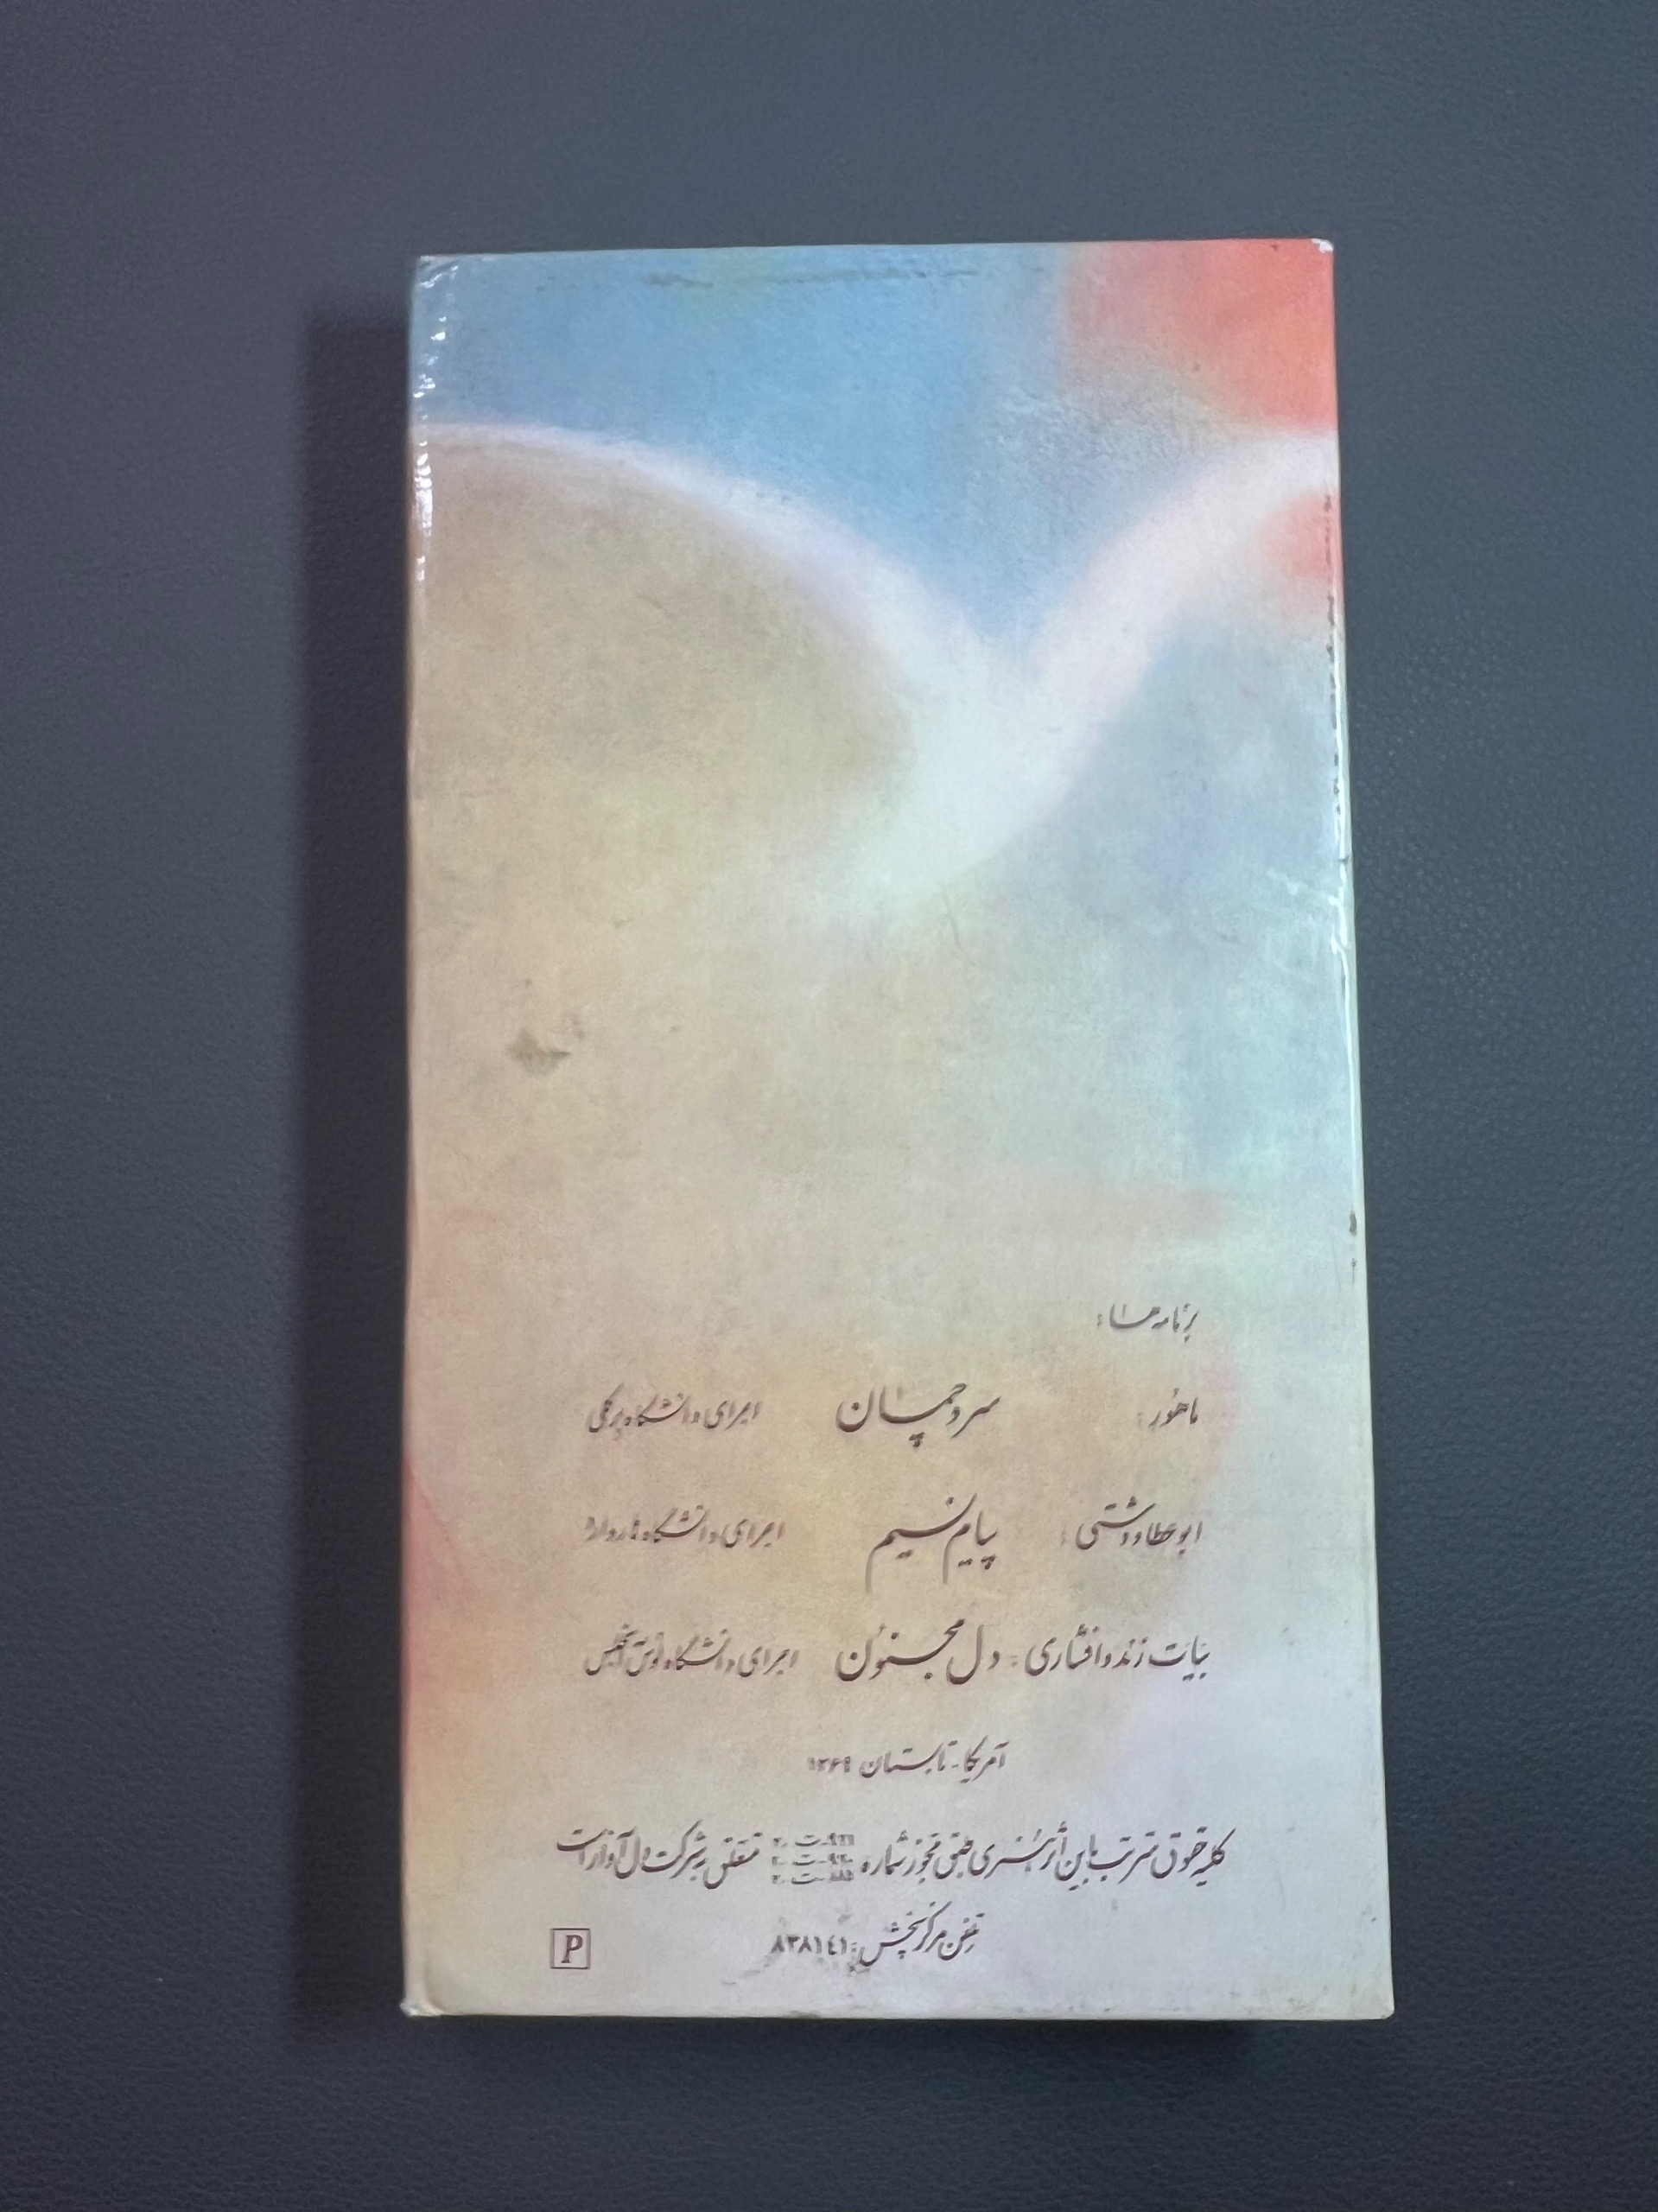 برنامه‌ها:
ماهور: سروچمان اجرای دانشگاه برکلی
ابوعطا و دشتی: پیام نسیم اجرای دانشگاه هاروارد
بیات زند و افشاری: دل مجنون اجرای دانشگاه لوس آنجلس
آمریکا - تابستان ۱۳۶۹
کلیه حقوق مترتب باین اثر هنری طبق مجوز شماره متعلق بشرکت دل آواز است
تلفن مرکز پخش: ۸۳۸۱٤۱
P